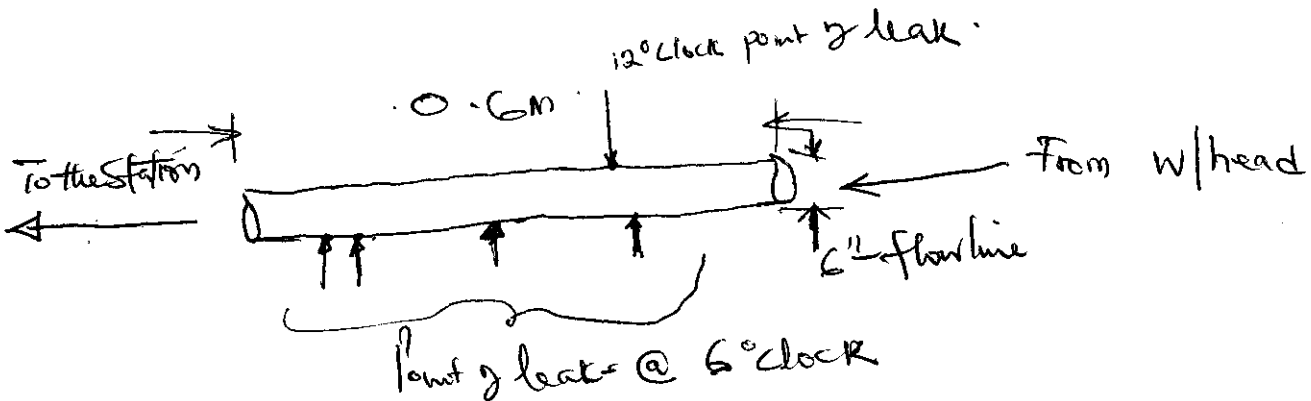 12°Clock point of leak.
0.6m
To the Station
From W/head
6" flowline
Point of leak @ 6°Clock